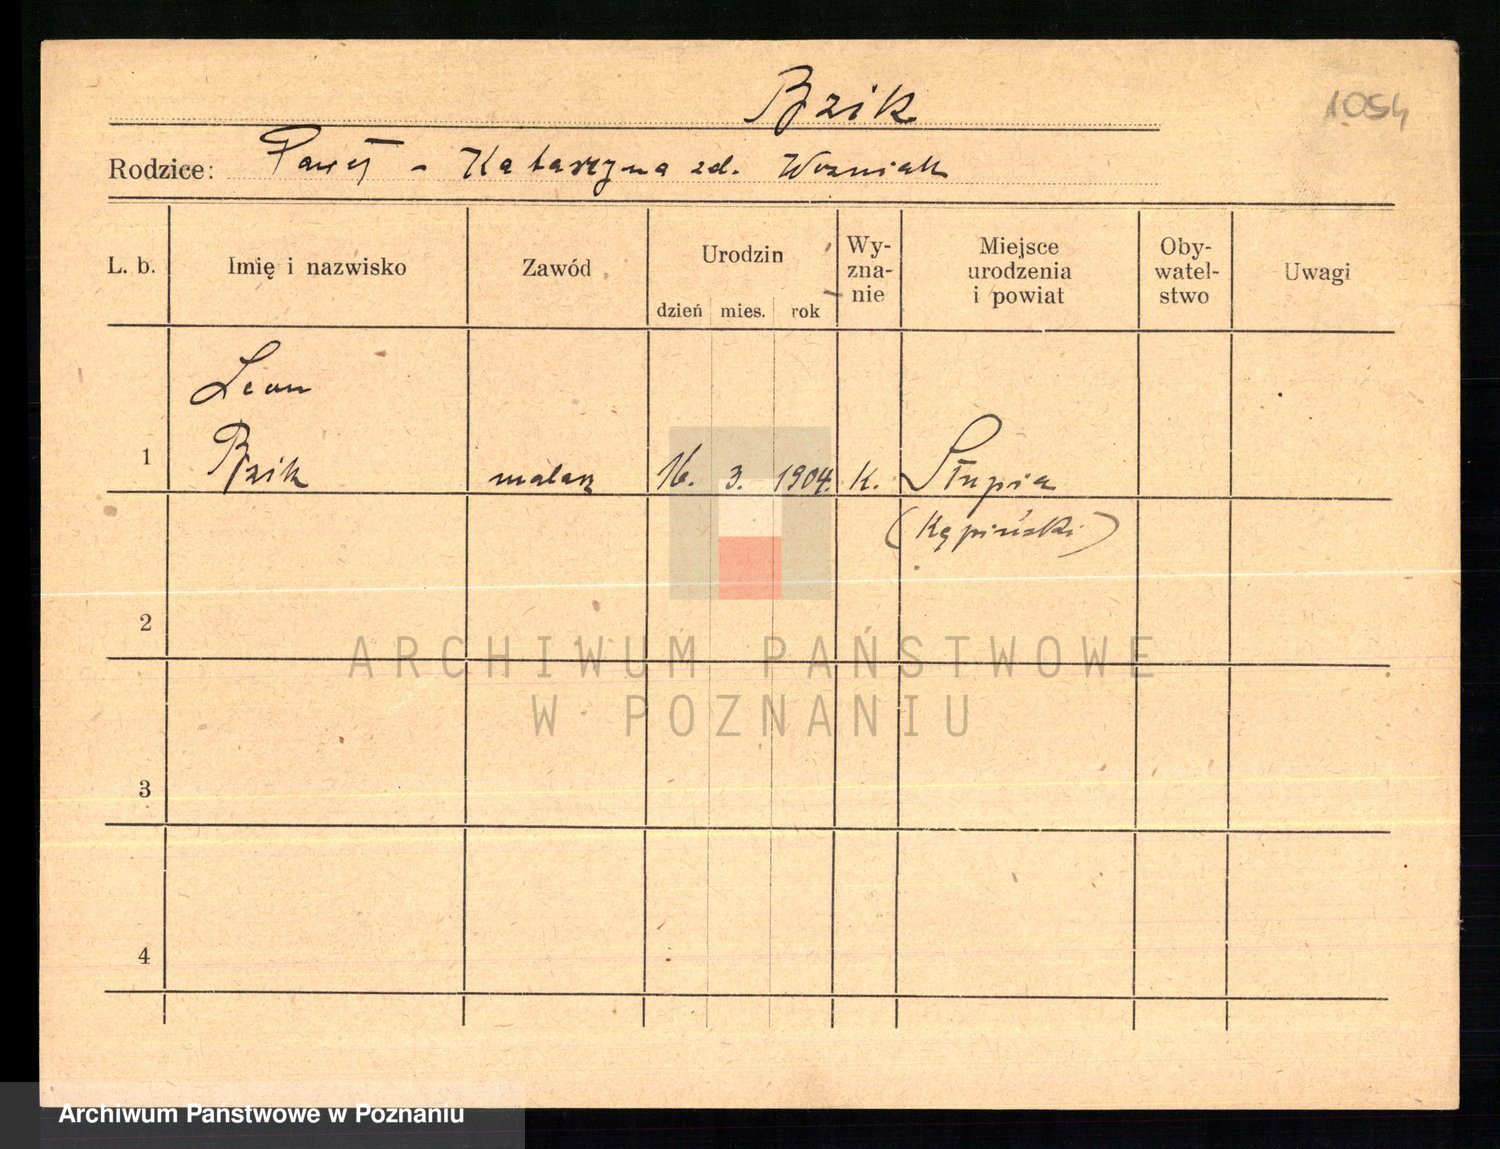 Bzik
1054
Rodzice: Paweł - Katarzyna zd. Wozniak
L. b. Imię i nazwisko Zawód Urodzin dzień mies. rok Wy-zna-nie Miejsce urodzenia i powiat Oby-watel-stwo Uwagi
Leon
1 Bzik malarz 16. 3. 1904. K. Słupia
(Kępiński)
2
ARCHIWUM PAŃSTWOWE
W POZNANIU
3
4
Archiwum Państwowe w Poznaniu